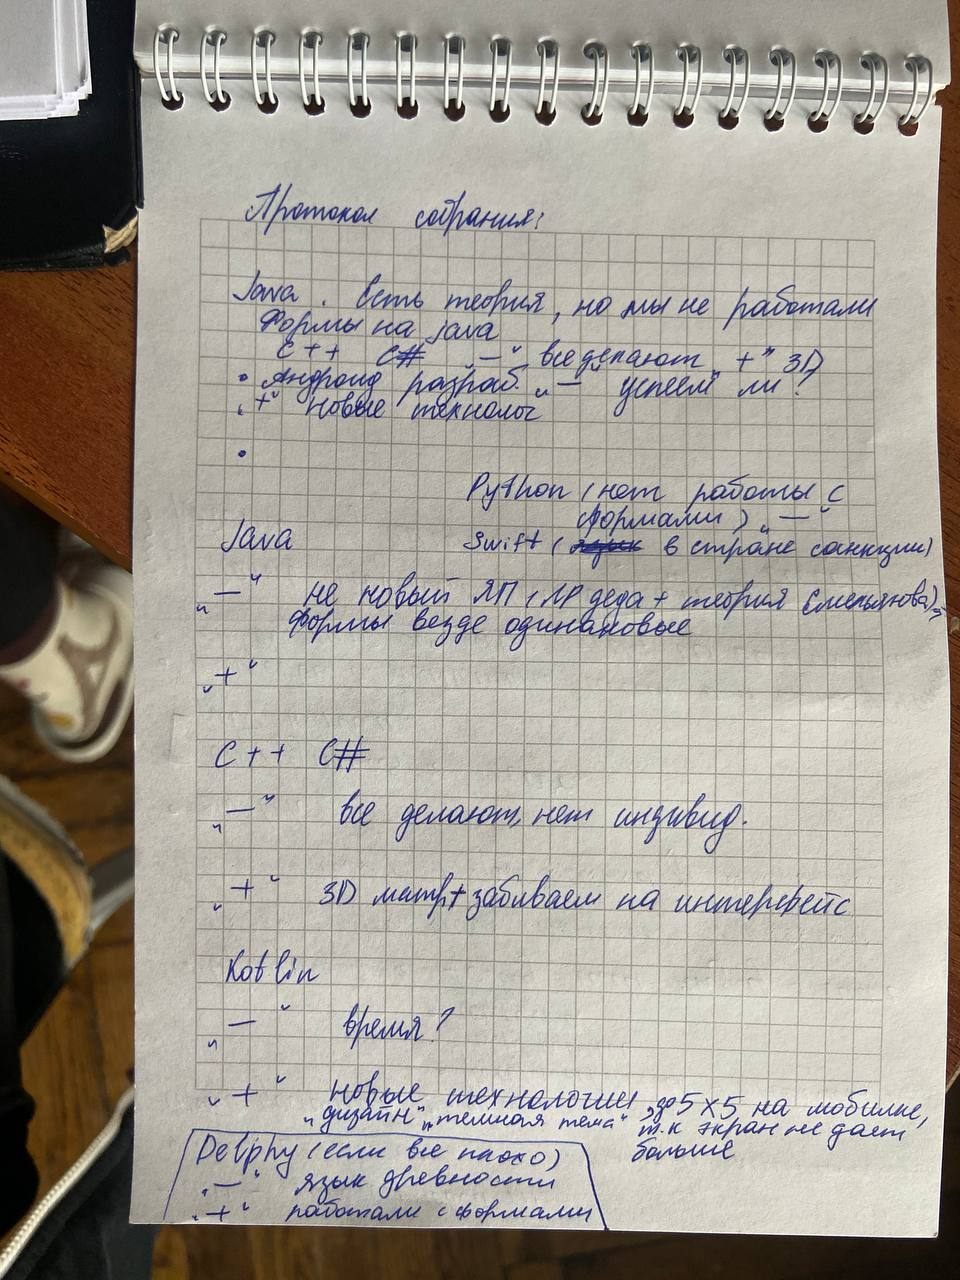 Протокол собрания:
Java. Есть теория, но мы не работали
Формы на java
C++ C# „—“ все делают „+“ 3D
• Андроид разраб. „—“ успеем ли?
„+“ новые технолог
•
Python (нет работы с
формами) „—“
Java
Swift ( в стране санкции)
„—“ не новый ЯП (ЛР деда + теория Смельянова)
Формы везде одинаковые
„+“
C++ C#
„—“ все делают, нет индивид.
„+“ 3D матр + забиваем на интерфейс
Kotlin
„—“ время?
„+“ новые технологии, до 5x5 на мобилке,
„дизайн“ „темная тема“ т.к экран не дает
больше
Delphy (если все плохо)
„—“ язык древности
„+“ работали с формами